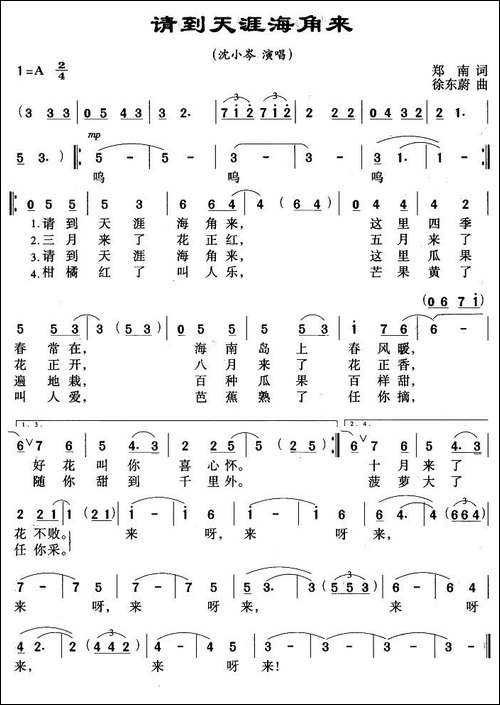 请到天涯海角来
(沈小岑 演唱)
1=A 2/4
郑 南 词
徐东蔚 曲
(3 33 | 05 43 | 3 2. | 712 712 | 0121 0121 | 0121 0123 |
mp
5 3.) 5 - | 5 - | 3 - | 3 - | 3 1. | 1 -
呜 呜 呜
0 5 5 3 | 5 5 3 | 4 6 4 6 | 4 (6 4) | 0 5 4 | 4 2
1.请 到 天 涯 海 角 来, 这 里 四 季
2.三 月 来 了 花 正 红, 五 月 来 了
3.请 到 天 涯 海 角 来, 这 里 瓜 果
4.柑 橘 红 了 叫 人 乐, 芒 果 黄 了
(0 6 7 i)
5 5 3 | 3 (5 3) | 0 5 4 3 | 4 3 5 | 1 7 6 | 6 -
春 常 在, 海 南 岛 上 春 风 暖,
花 正 开, 八 月 来 了 花 正 香,
遍 地 栽, 百 种 瓜 果 百 样 甜,
叫 人 爱, 芭 蕉 熟 了 任 你 摘,
1. 3. 2. 4.
6 7 6 | 5 4 3 | 5 2 5 | 5 (2 5) 6 7 6 | 5 4. 3
好 花 叫 你 喜 心 怀。 十 月 来 了
随 你 甜 到 千 里 外。 菠 萝 大 了
0 2 2 1 | 1 (2 1) | i - | i 6 | i - | i 6 | 6 4. | 4 (6 6 4)
花 不败。 来 呀, 来 呀 来,
任 你采。
7 - | 7 5 | 7 - | 7 5 | 5 3. | 3 (5 5 3) | 6 - | 6 5
来 呀, 来 呀 来, 来 呀
4 2. | 2 (4 4 2) | 5 - | 5 3 | 1 - | 1 - | 1 0
来, 来 呀 来!